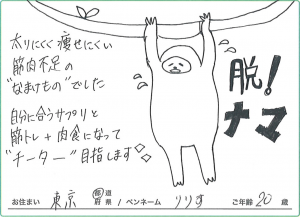 太りにくく痩せにくい
筋肉不足の
"なまけもの"でした
自分に合うサプリと
筋トレ+肉食になって
"チーター"目指します
脱!
ナマ
お住まい 東京 都道府県 / ペンネーム りりす ご年齢 20 歳